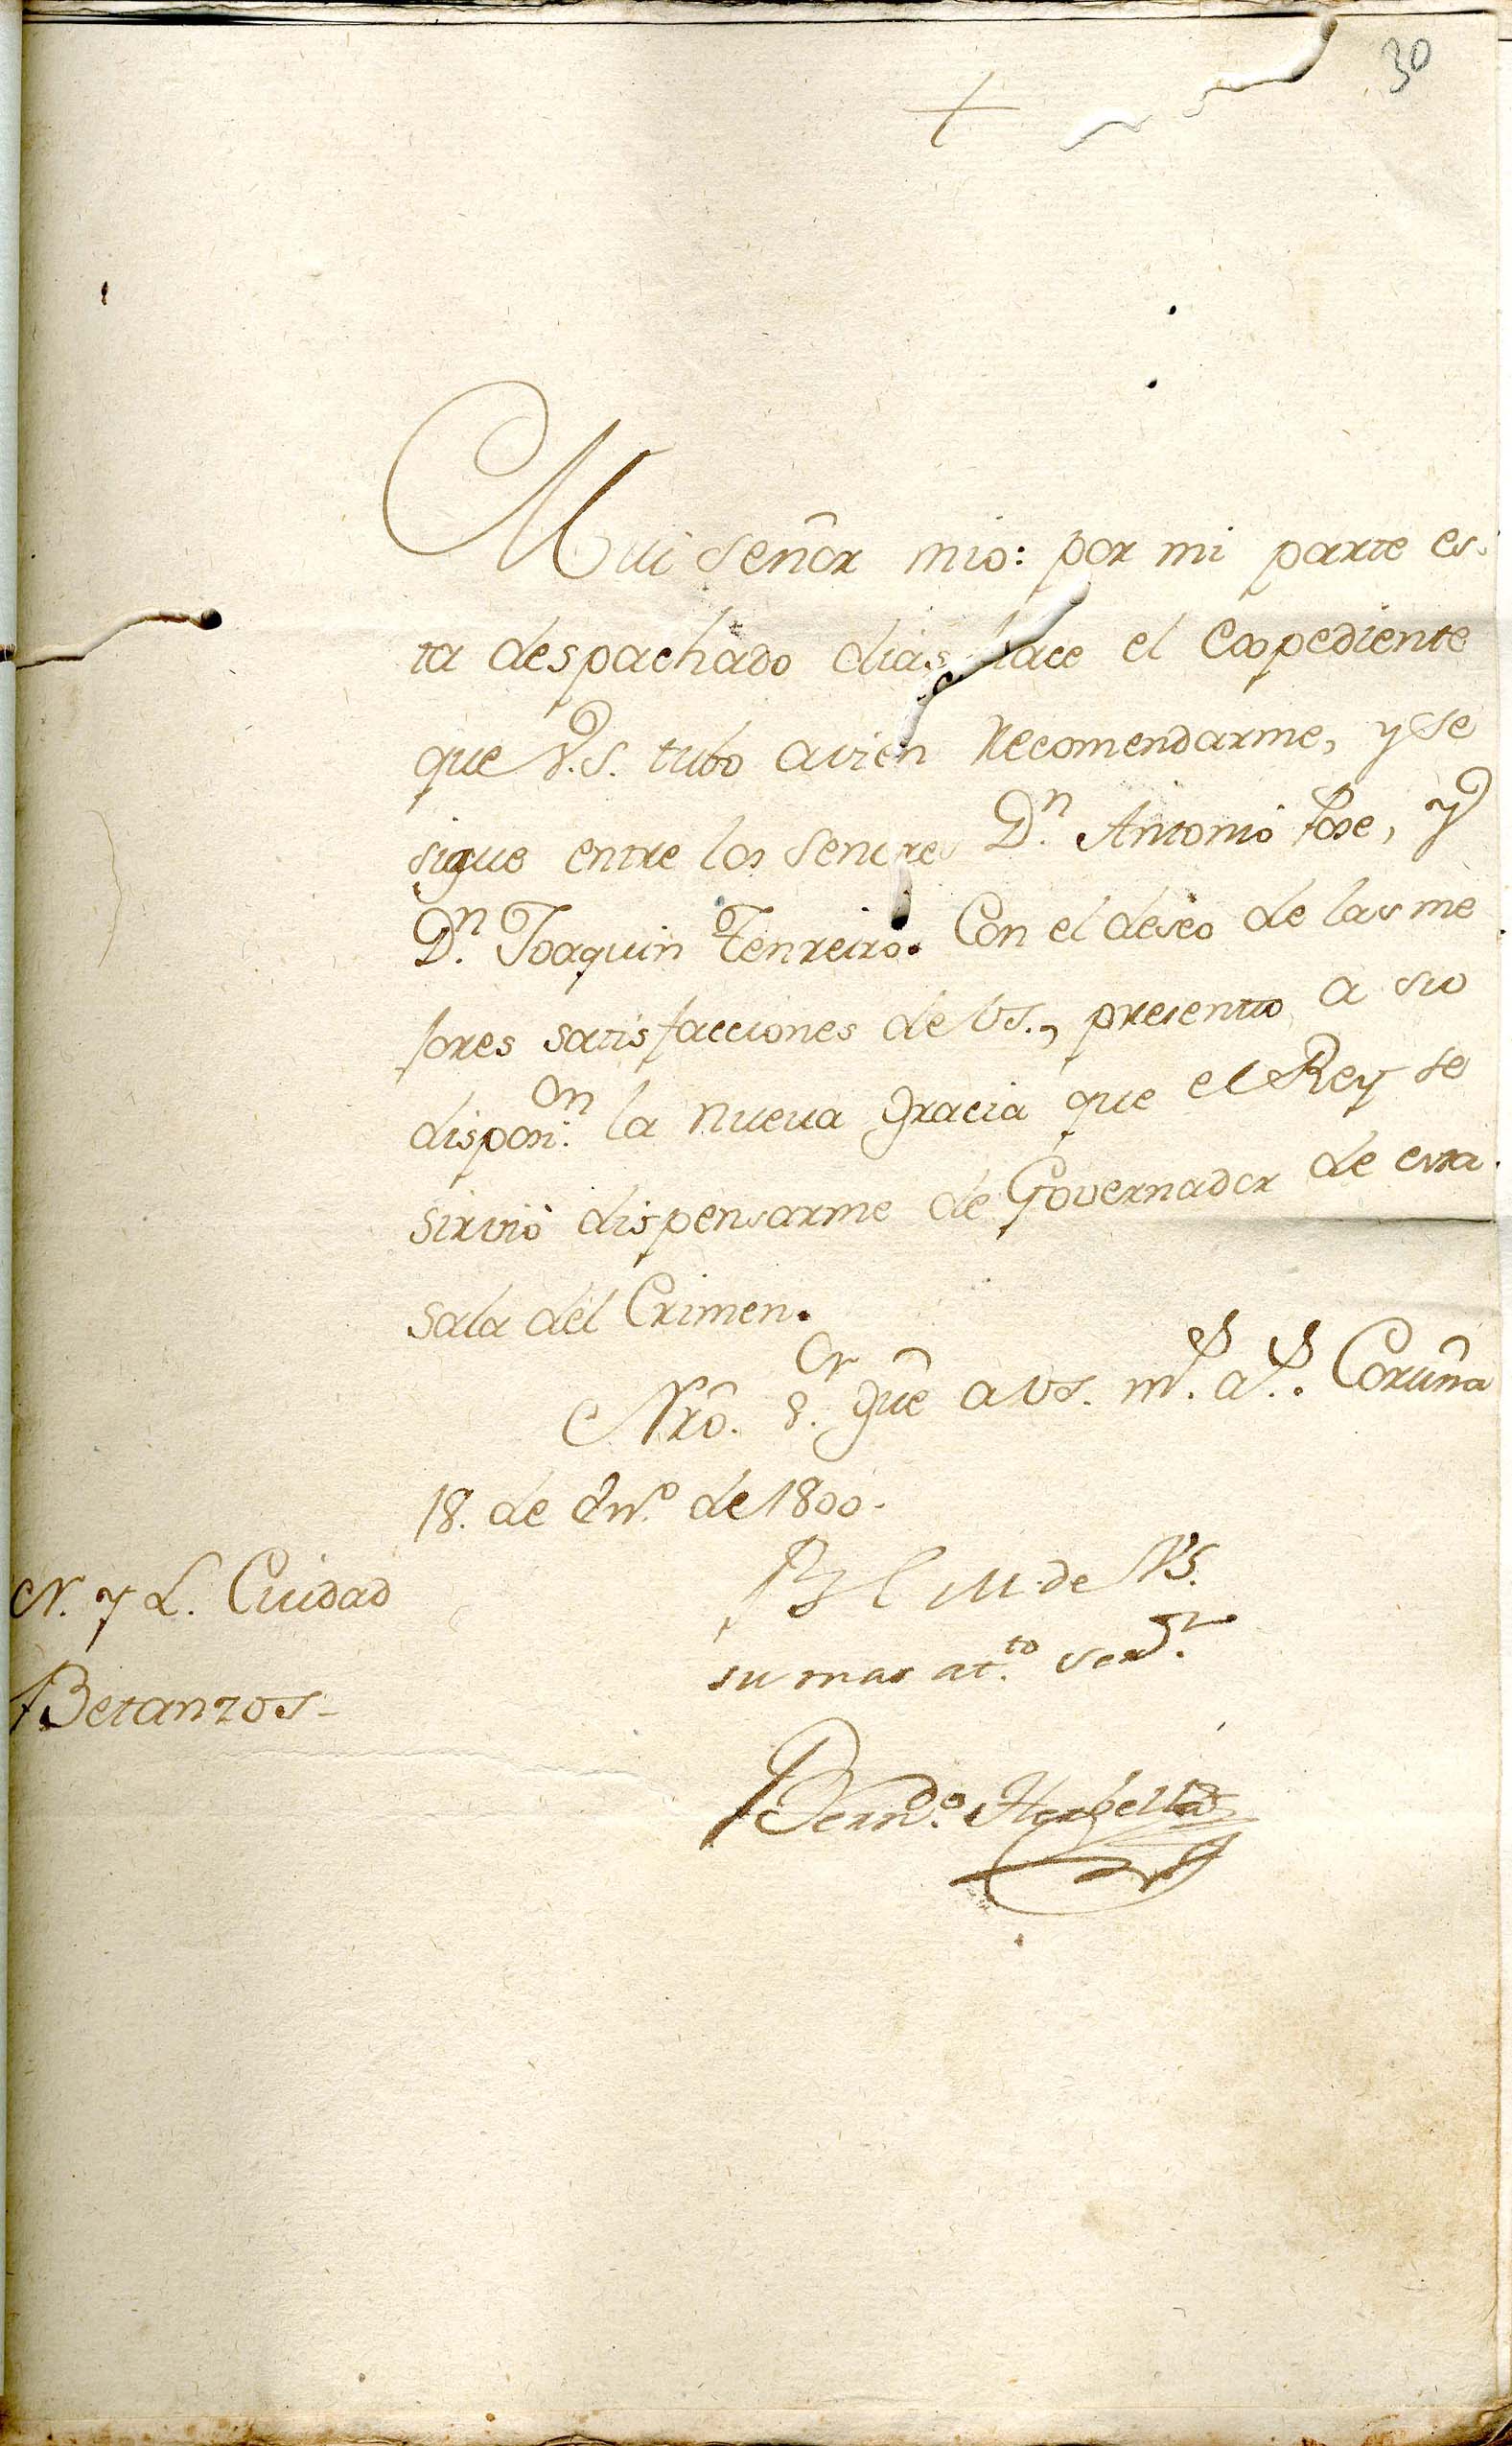 30
+
Mui Señor mio: por mi parte es-
ta despachado dias hace el Expediente
que V.S. tubo avien Recomendarme, y se
sigue entre los Senores Dn. Antonio Jose, y
Dn. Joaquin Tenreiro. Con el deseo de las me
jores satisfacciones de VS., presento a su
dispon.on la nueva gracia que el Rey se
sirvió dispensarme de Governador de esta
sala del Crimen.
Nrô. S.or gûe a VS. m.s a.s. Coruña
18. de En.o de 1800.
B L M. de VS.
su mas at.to ser.or
N. y L. Cuidad
Betanzos-
Bern.do Hervella